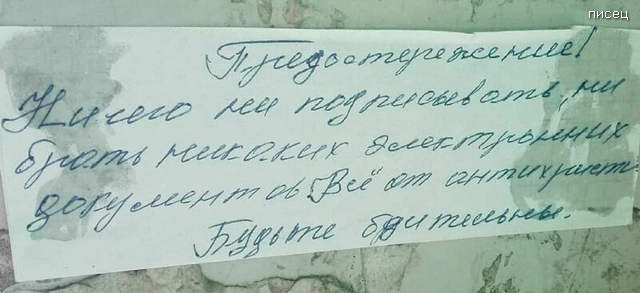 писец
Предостережение!
Ничего ни подписывать, ни
брать никаких электронних
документов. Всё от антихриста
Будьте бдительны.